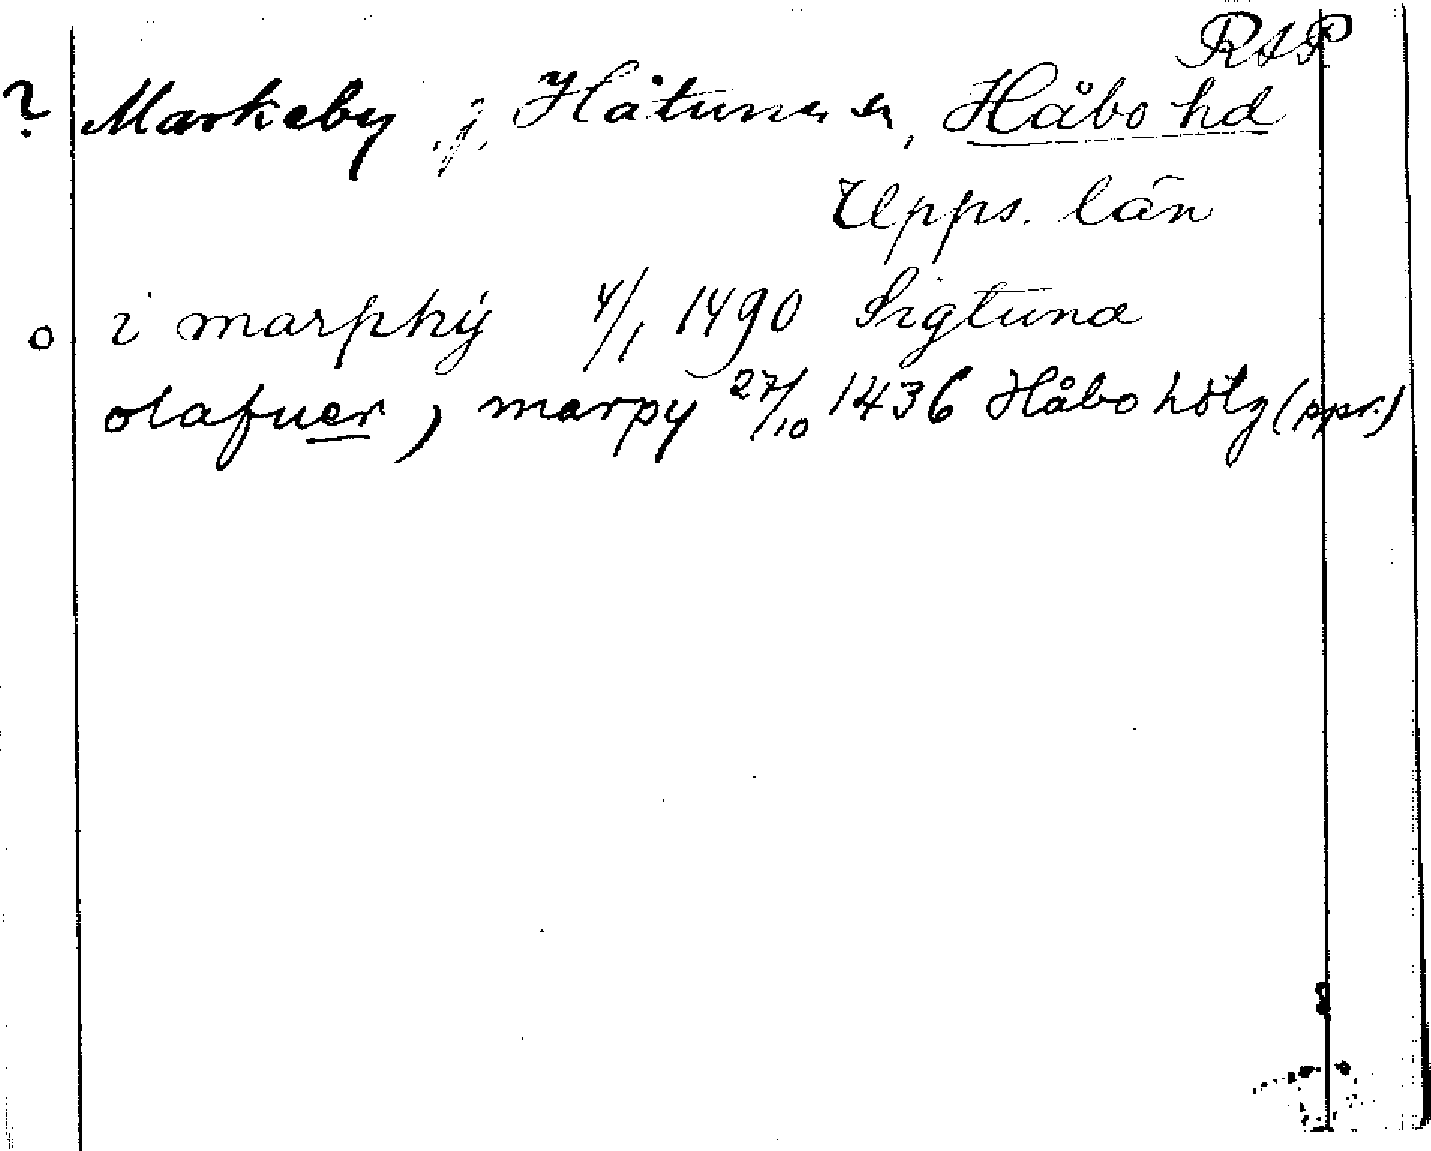 RAP
? Markeby, j, Håtuna sn, Håbo hd
Upps. län
o i marphÿ 4/1 1490 Sigtuna
olafuer j marpy 27/10 1436 Håbo hdtg (ppr.)